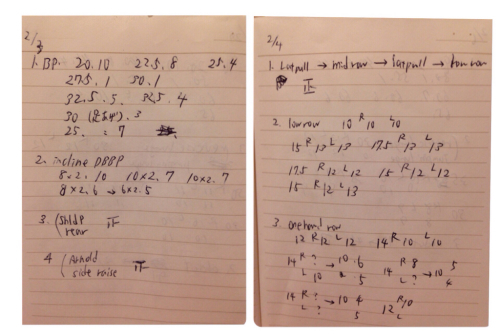 2/3
1. BP. 20.10 22.5.8 25.4
27.5.1 30.1
32.5.5. 32.5.4
30 (足あげ).3
25. = 7
2. incline DBBP
8x2.10 10x2.7 10x2.7
8x2.6 → 6x2.5
3. (Shldp 正
rear
4 (Arnold 正
side raise
2/4
1. Latpull → midrow → latpull → low row
正
2. lowrow 10 R 10 L 10
15 R 12 L 13 17.5 R 12 L 13
17.5 R 12 L 12 15 R 12 L 12
15 R 12 L 13
3. onehand row
12 R 12 L 12 14 R 10 L 10
14 R ? → 10 6 R 8
L 10 5 14 L ? → 10 5
14 R ? → 10 4 R 10
L ? 5 12 L